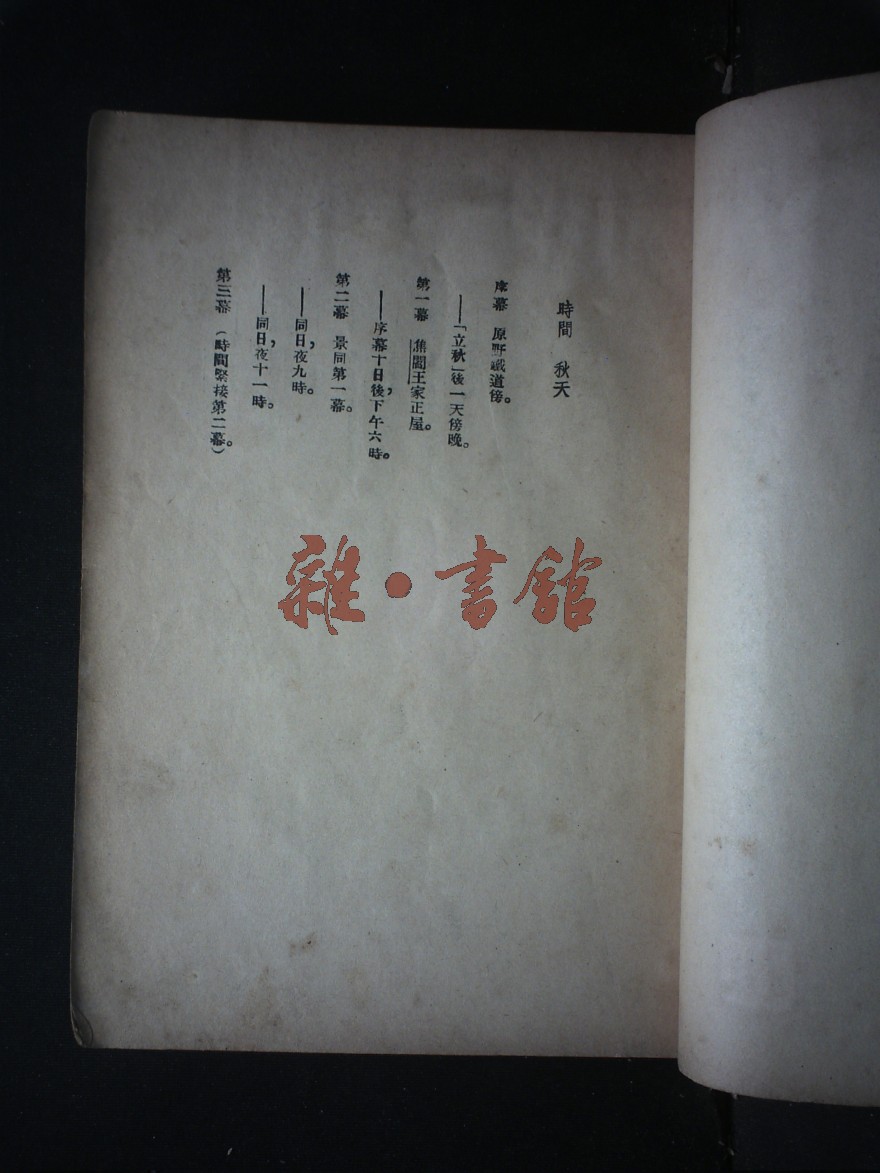 時間　秋天
序幕　原野鐵道傍。
——「立秋」後一天傍晚。
第一幕　焦閻王家正屋。
——序幕十日後，下午六時。
第二幕　景同第一幕。
——同日，夜九時。
——同日，夜十一時。
第三幕　（時間緊接第二幕。）
雜·書館